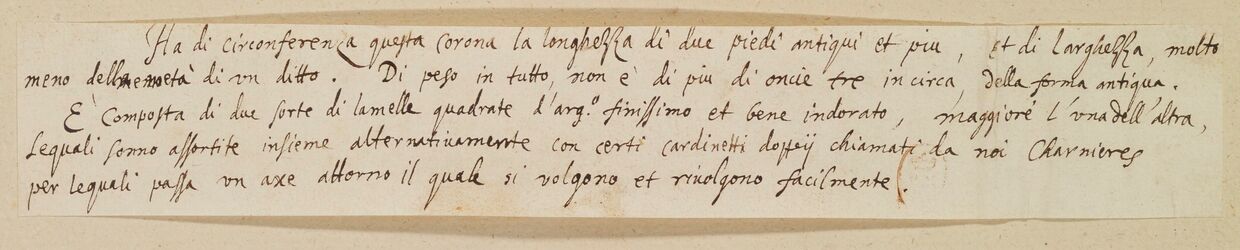 Ha di circonferenza questa corona la longhezza di due piedi antiqui et piu, et di larghezza, molto
meno della metà di un ditto. Di peso in tutto, non è di piu di oncie tre in circa, della forma antiqua.
È composta di due sorte di lamelle quadrate d'arg.º finissimo et bene indorato, maggiore l'una dell'altra,
Lequali sonno assortite insieme alternativamente con certi cardinetti doppij chiamati da noi Charnieres
per lequali passa un axe attorno il quale si volgono et rivolgono facilmente.